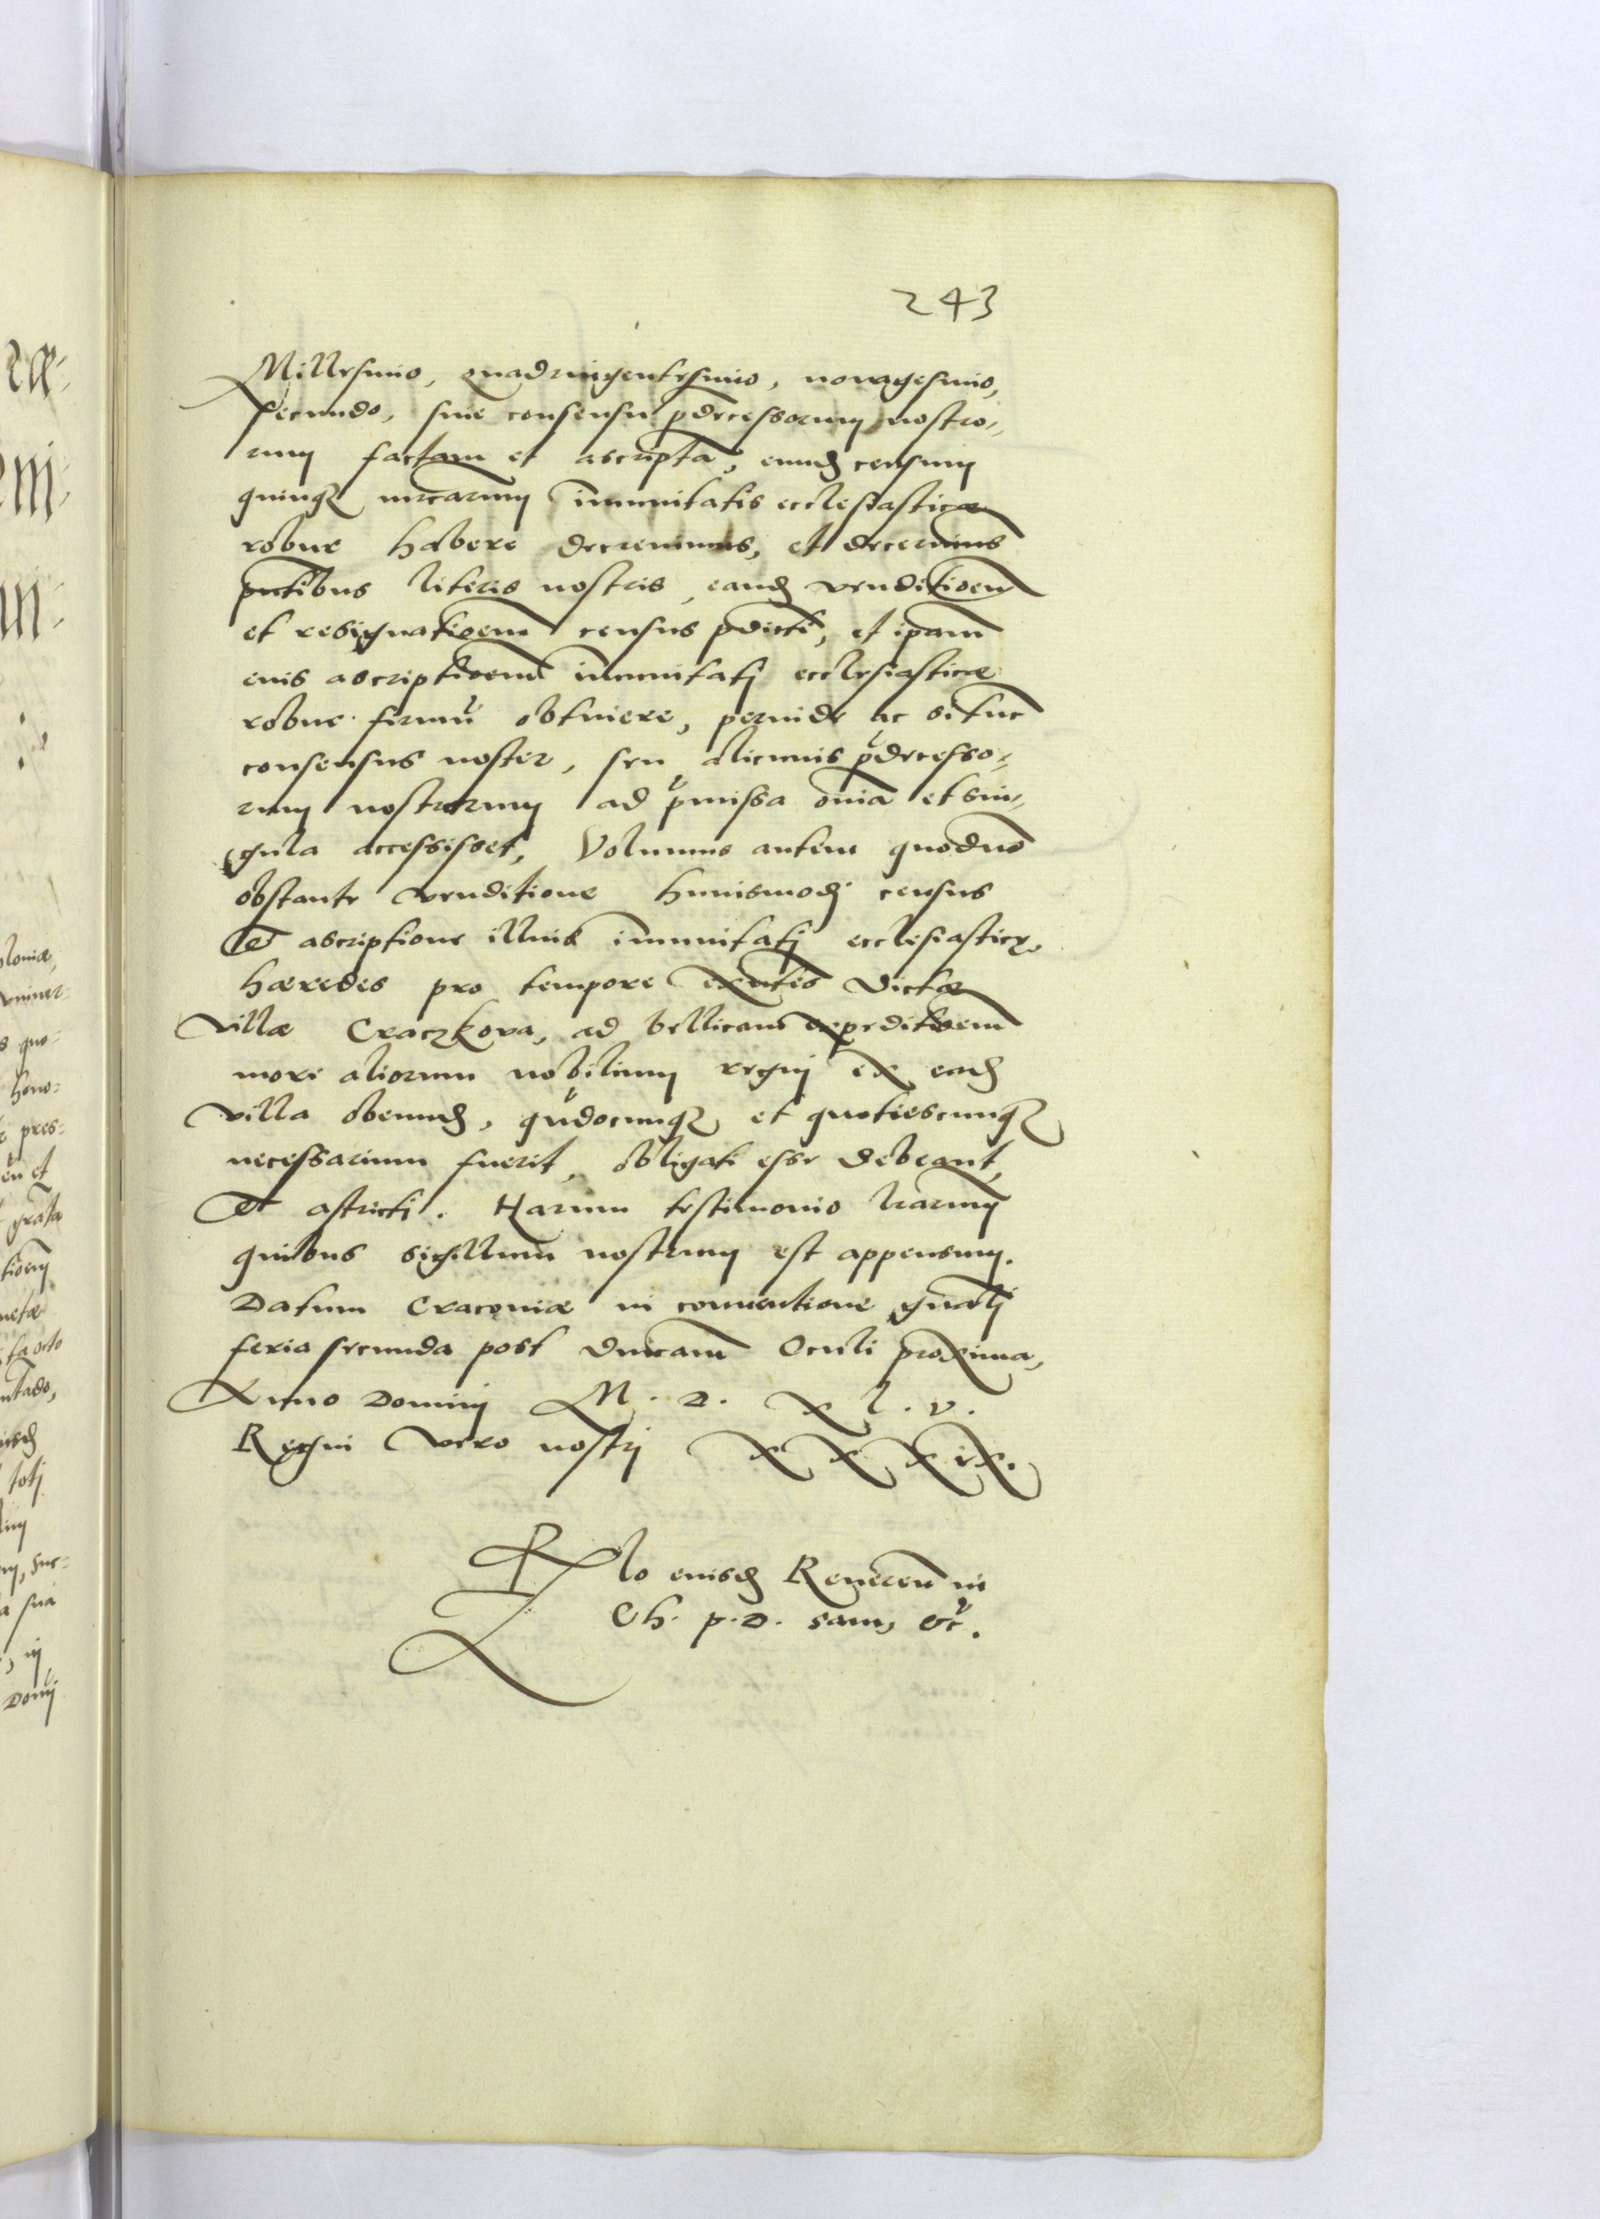 243
Millesimo, quadringentesimo, nonagesimo,
secundo, sine consensu p̄decessorum nostro-
rum factam et ascriptā, eund̄ censum
quinq̨ mr̄carum im̄unitatis ecclesiasticæ
robur habere decreuimus, et decernimus
pn̄tibus literis nostris, eand̄ venditioem̄
et resignatioem̄ census p̄dicti, et ip̄am
eius ascriptioem̄ im̄unitati ecclesiasticæ
robur firmū obtinere, perinde ac si tunc
consensus noster, seu alicuius p̄decesso-
rum nostrorum ad p̄missa om̄ia et sin-
gula accessisset, Volumus autem quod nō
obstante venditione huiusmodi census
Et ascriptione illius im̄unitati ecclesiasticę,
hæredes pro tempore exn̄tes dictæ
villæ Craczkova, ad bellicam expeditioem̄
more aliorum nobilium regni ex ead̄
villa obeund̄, qūdocunq̨ et quotiescunq̨
necessarium fuerit, obligati esse debeant,
Et astricti. Harum testimonio lr̄arum
quibus sigillum nostrum est appensum.
Datum Cracouiæ in conuentione gn̄ali
feria secunda post dn̄icam Oculi proxima,
Anno Domini M. D. x l. v.
Regni vero nostri x x x ix.
Rlo eiusd̄ Reueren̄ in
Ch. p. D. Sam, &c̄.
7
olonia,
s quo-
hono-
pres-
et
grata
netæ
ta octo
ntado,
toti
suc-
a sua
Domi